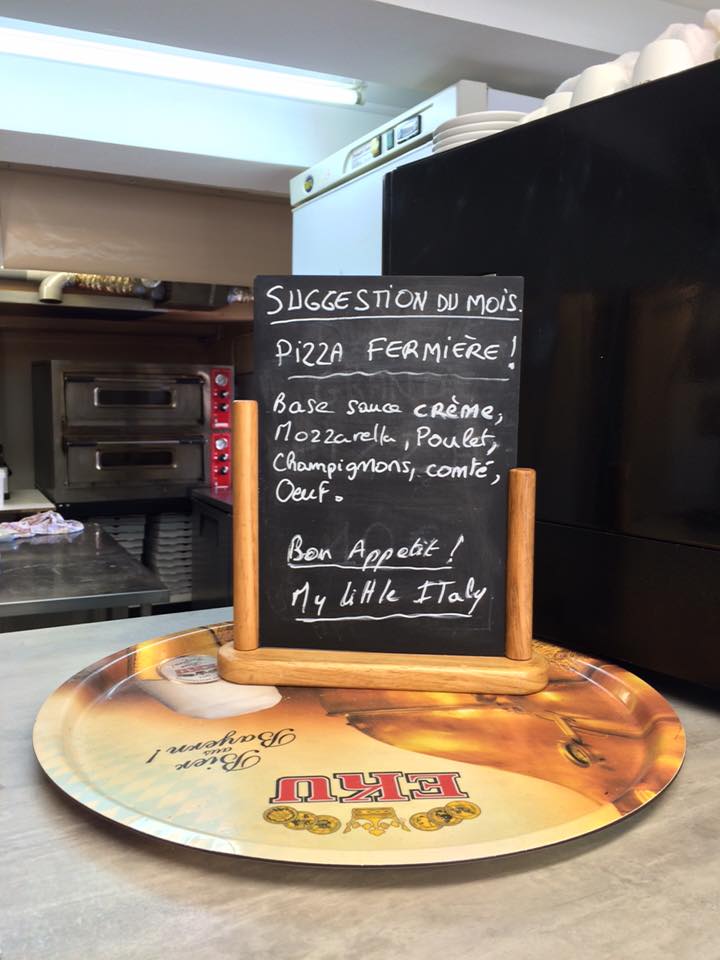 SUGGESTION DU MOIS.
PIZZA FERMIÈRE!
Base sauce CRÈME,
Mozzarella, Poulet,
Champignons, comté,
Oeuf.
Bon Appetit!
My little ITaly
Bier
aus
Bayern!
EKU